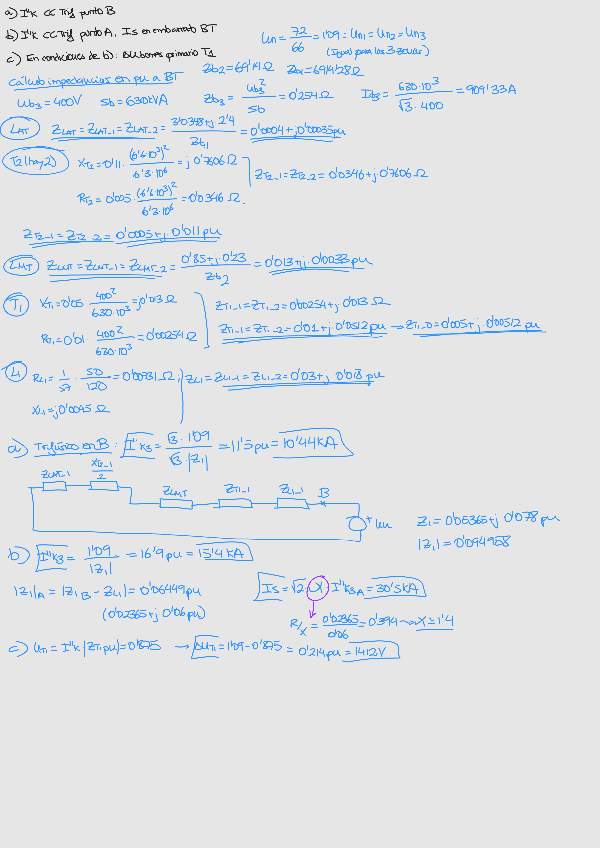 a) I''k CC Trif punto B
b) I''k CC Trif punto A, Is en embarrado BT
c) En condiciones de b): ΔU bornes primario T1
Un = 72/66 = 1'09 = Un1 = Un2 = Un3
(Igual para las 3 zonas)
Cálculo impedancias en pu a BT
Zb2 = 69'14Ω Zb1 = 6914'28Ω
Ub3 = 400V Sb = 630kVA Zb3 = Ub3²/Sb = 0'254Ω Ib3 = 630·10³/√3·400 = 909'33A
LAT ZLAT = ZLAT-1 = ZLAT-2 = 3'0348+j 2'4/Zb1 = 0'0004+j 0'00035pu
T2 (hay 2) XT2 = 0'11 · (6'6·10³)²/6'3·10⁶ = j 0'7606 Ω
RT2 = 0'005 · (6'6·10³)²/6'3·10⁶ = 0'0346 Ω.
ZT2-1 = ZT2-2 = 0'0346+j·0'7606 Ω
ZT2-1 = ZT2-2 = 0'0005+j 0'011pu
LMT ZLMT = ZLMT-1 = ZLMT-2 = 0'85+j 0'23/Zb2 = 0'013+j 0'0033pu
T1 XT1 = 0'05 400²/630·10³ = j 0'013 Ω
RT1 = 0'01 400²/630·10³ = 0'00254 Ω
ZT1-1 = ZT1-2 = 0'00254+j 0'013 Ω
ZT1-1 = ZT1-2 = 0'01+j 0'0512 pu → ZT1-0 = 0'005+j 0'00512 pu
L1 RL1 = 1/57 · 50/120 = 0'00731 Ω
XL1 = j 0'0045 Ω
ZL1 = ZL1-1 = ZL1-2 = 0'03+j 0'018 pu
a) Trifásico en B: I''k3 = √3·1'09/√3·|Z1| = 11'5pu = 10'44kA
ZLAT-1 XT2-1/2 ZLMT ZT1-1 ZL1-1 B
+ Un
Z1 = 0'05365+j 0'078 pu
|Z1| = 0'094968
b) I''k3 = 1'09/|Z1| = 16'9pu = 15'4kA
|Z1|A = |Z1B - ZL1| = 0'06449pu
(0'02365+j 0'06pu)
Is = √2·X·I''k3A = 30'5kA
R/X = 0'02365/0'06 = 0'394 → X = 1'4
c) UT1 = I''k |ZT1pu| = 0'875 → ΔUT1 = 1'09-0'875 = 0'214pu = 1412V